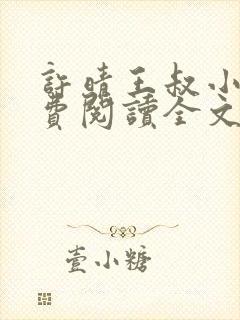 許晴王叔小
費閱讀全文
壹小糖